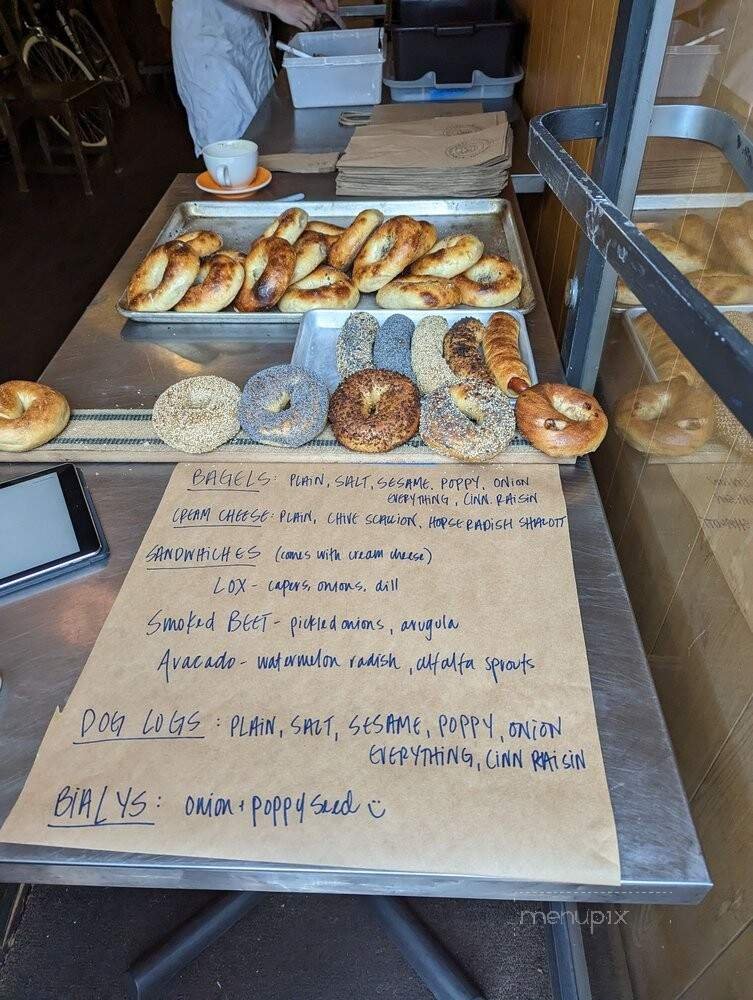 BAGELS: PLAIN, SALT, SESAME, POPPY, ONION
EVERYTHING, CINN. RAISIN
CREAM CHEESE: PLAIN, CHIVE SCALLION, HORSERADISH SHALOTT
SANDWHICHES (comes with cream cheese)
LOX - capers, onions, dill
Smoked BEET - pickled onions, arugula
Avacado - watermelon radish, alfalfa sprouts
DOG LOGS: PLAIN, SALT, SESAME, POPPY, ONION
EVERYTHING, CINN RAISIN
BIALYS: onion + poppy seed
menupix